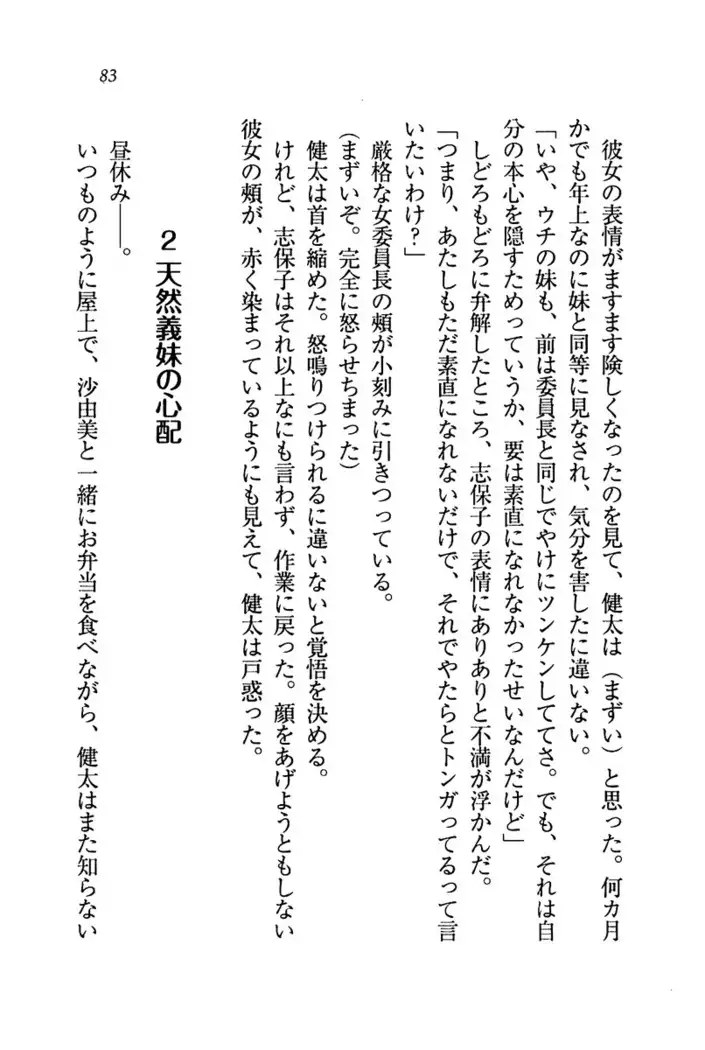 83
彼女の表情がますます険しくなったのを見て、健太は（まずい）と思った。何カ月
かでも年上なのに妹と同等に見なされ、気分を害したに違いない。
「いや、ウチの妹も、前は委員長と同じでやけにツンケンしててさ。でも、それは自
分の本心を隠すためっていうか、要は素直になれなかったせいなんだけど」
しどろもどろに弁解したところ、志保子の表情にありありと不満が浮かんだ。
「つまり、あたしもただ素直になれないだけで、それでやたらとトンガってるって言
いたいわけ？」
厳格な女委員長の頰が小刻みに引きつっている。
（まずいぞ。完全に怒らせちまった）
健太は首を縮めた。怒鳴りつけられるに違いないと覚悟を決める。
けれど、志保子はそれ以上なにも言わず、作業に戻った。顔をあげようともしない
彼女の頰が、赤く染まっているようにも見えて、健太は戸惑った。
2 天然義妹の心配
昼休み――。
いつものように屋上で、沙由美と一緒にお弁当を食べながら、健太はまた知らない